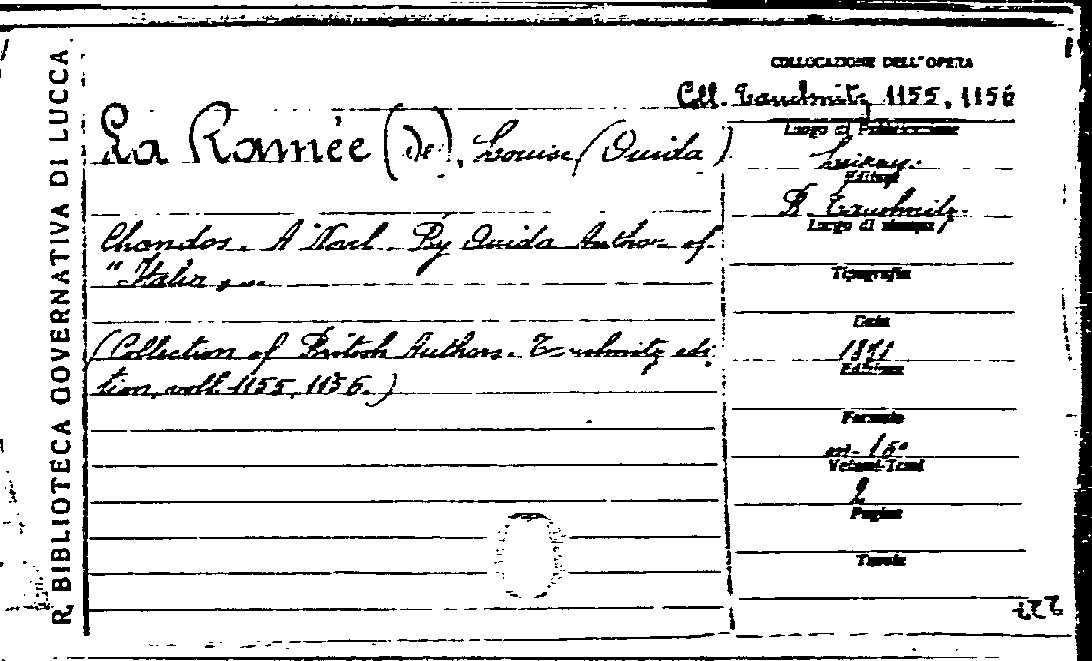 R. BIBLIOTECA GOVERNATIVA DI LUCCA
COLLOCAZIONE DELL'OPERA
Coll. Tauchnitz 1155, 1156
La Ramée (De), Louise (Ouida)
Chandos. A Novel. By Ouida Author of
"Italia
(Collection of British Authors. Tauchnitz edi-
tion, voll. 1155, 1156.)
Luogo di Pubblicazione
Editori
B. Tauchnitz.
Luogo di stampa
Tipografia
Data
1871
Edizione
Formato
in-16°
Volumi-Tomi
2
Pagine
Tavole